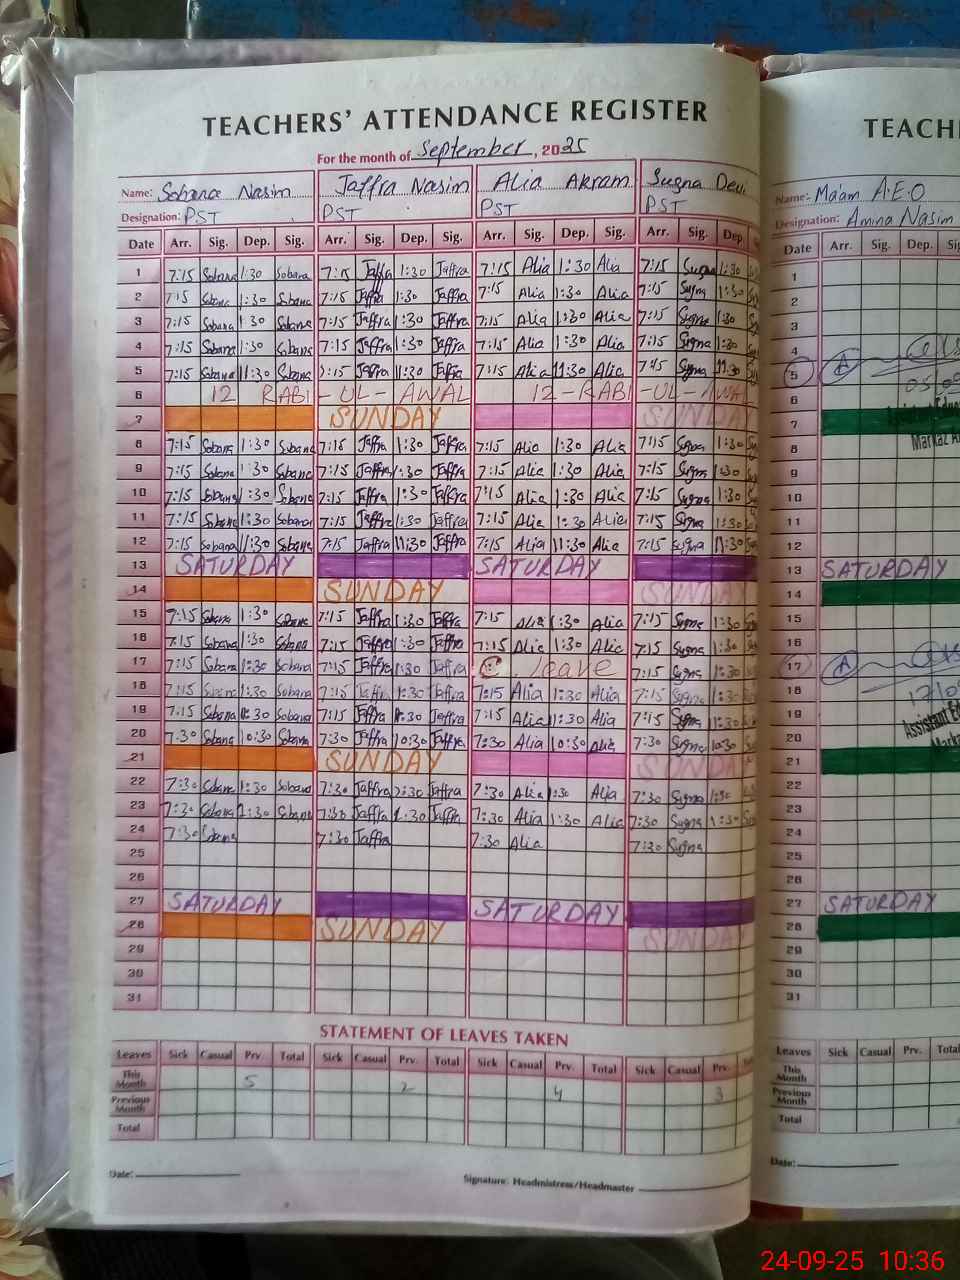 TEACHERS' ATTENDANCE REGISTER
For the month of September, 2025
Name: Sobana Nasim Jaffra Nasim Alia Akram Sugna Devi
Designation: PST PST PST PST
Date Arr. Sig. Dep. Sig. Arr. Sig. Dep. Sig. Arr. Sig. Dep. Sig. Arr. Sig. Dep.
1 7:15 Sobana 1:30 Sobana 7:15 Jaffra 1:30 Jaffra 7:15 Alia 1:30 Alia 7:15 Sugna 1:30
2 7:15 Sobana 1:30 Sobana 7:15 Jaffra 1:30 Jaffra 7:15 Alia 1:30 Alia 7:15 Sugna 1:30
3 7:15 Sobana 1:30 Sobana 7:15 Jaffra 1:30 Jaffra 7:15 Alia 1:30 Alia 7:15 Sugna 1:30
4 7:15 Sobana 1:30 Sobana 7:15 Jaffra 1:30 Jaffra 7:15 Alia 1:30 Alia 7:15 Sugna 1:30
5 7:15 Sobana 11:30 Sobana 7:15 Jaffra 11:30 Jaffra 7:15 Alia 11:30 Alia 7:15 Sugna 11:30
6 12 RABI-UL-AWAL 12-RABI-UL-AWAL
7 SUNDAY SUNDAY
8 7:15 Sobana 1:30 Sobana 7:15 Jaffra 1:30 Jaffra 7:15 Alia 1:30 Alia 7:15 Sugna 1:30
9 7:15 Sobana 1:30 Sobana 7:15 Jaffra 1:30 Jaffra 7:15 Alia 1:30 Alia 7:15 Sugna 1:30
10 7:15 Sobana 1:30 Sobana 7:15 Jaffra 1:30 Jaffra 7:15 Alia 1:30 Alia 7:15 Sugna 1:30
11 7:15 Sobana 1:30 Sobana 7:15 Jaffra 1:30 Jaffra 7:15 Alia 1:30 Alia 7:15 Sugna 1:30
12 7:15 Sobana 11:30 Sobana 7:15 Jaffra 11:30 Jaffra 7:15 Alia 11:30 Alia 7:15 Sugna 11:30
13 SATURDAY SATURDAY
14 SUNDAY SUNDAY
15 7:15 Sobana 1:30 Sobana 7:15 Jaffra 1:30 Jaffra 7:15 Alia 1:30 Alia 7:15 Sugna 1:30
16 7:15 Sobana 1:30 Sobana 7:15 Jaffra 1:30 Jaffra 7:15 Alia 1:30 Alia 7:15 Sugna 1:30
17 7:15 Sobana 1:30 Sobana 7:15 Jaffra 1:30 Jaffra C. leave 7:15 Sugna 1:30
18 7:15 Sobana 1:30 Sobana 7:15 Jaffra 1:30 Jaffra 7:15 Alia 1:30 Alia 7:15 Sugna 1:30
19 7:15 Sobana 11:30 Sobana 7:15 Jaffra 11:30 Jaffra 7:15 Alia 11:30 Alia 7:15 Sugna 11:30
20 7:30 Sobana 10:30 Sobana 7:30 Jaffra 10:30 Jaffra 7:30 Alia 10:30 Alia 7:30 Sugna 10:30
21 SUNDAY SUNDAY
22 7:30 Sobana 1:30 Sobana 7:30 Jaffra 1:30 Jaffra 7:30 Alia 1:30 Alia 7:30 Sugna 1:30
23 7:30 Sobana 1:30 Sobana 7:30 Jaffra 1:30 Jaffra 7:30 Alia 1:30 Alia 7:30 Sugna 1:30
24 7:30 Sobana 7:30 Jaffra 7:30 Alia 7:30 Sugna
25
26
27 SATURDAY SATURDAY
28 SUNDAY SUNDAY
29
30
31
STATEMENT OF LEAVES TAKEN
Leaves Sick Casual Prv. Total Sick Casual Prv. Total Sick Casual Prv. Total Sick Casual Prv.
This Month 5 2 4 3
Previous Month
Total
Date: Signature: Headmistress/Headmaster
TEACH
Name: Ma'am A.E.O
Designation: Amna Nasim
Date Arr. Sig. Dep.
1
2
3
4
5
6
7
8
9
10
11
12
13 SATURDAY
14
15
16
17
18
19
20
21
22
23
24
25
26
27 SATURDAY
28
29
30
31
Leaves Sick Casual Prv. Total
This Month
Previous Month
Total
Date:
24-09-25 10:36